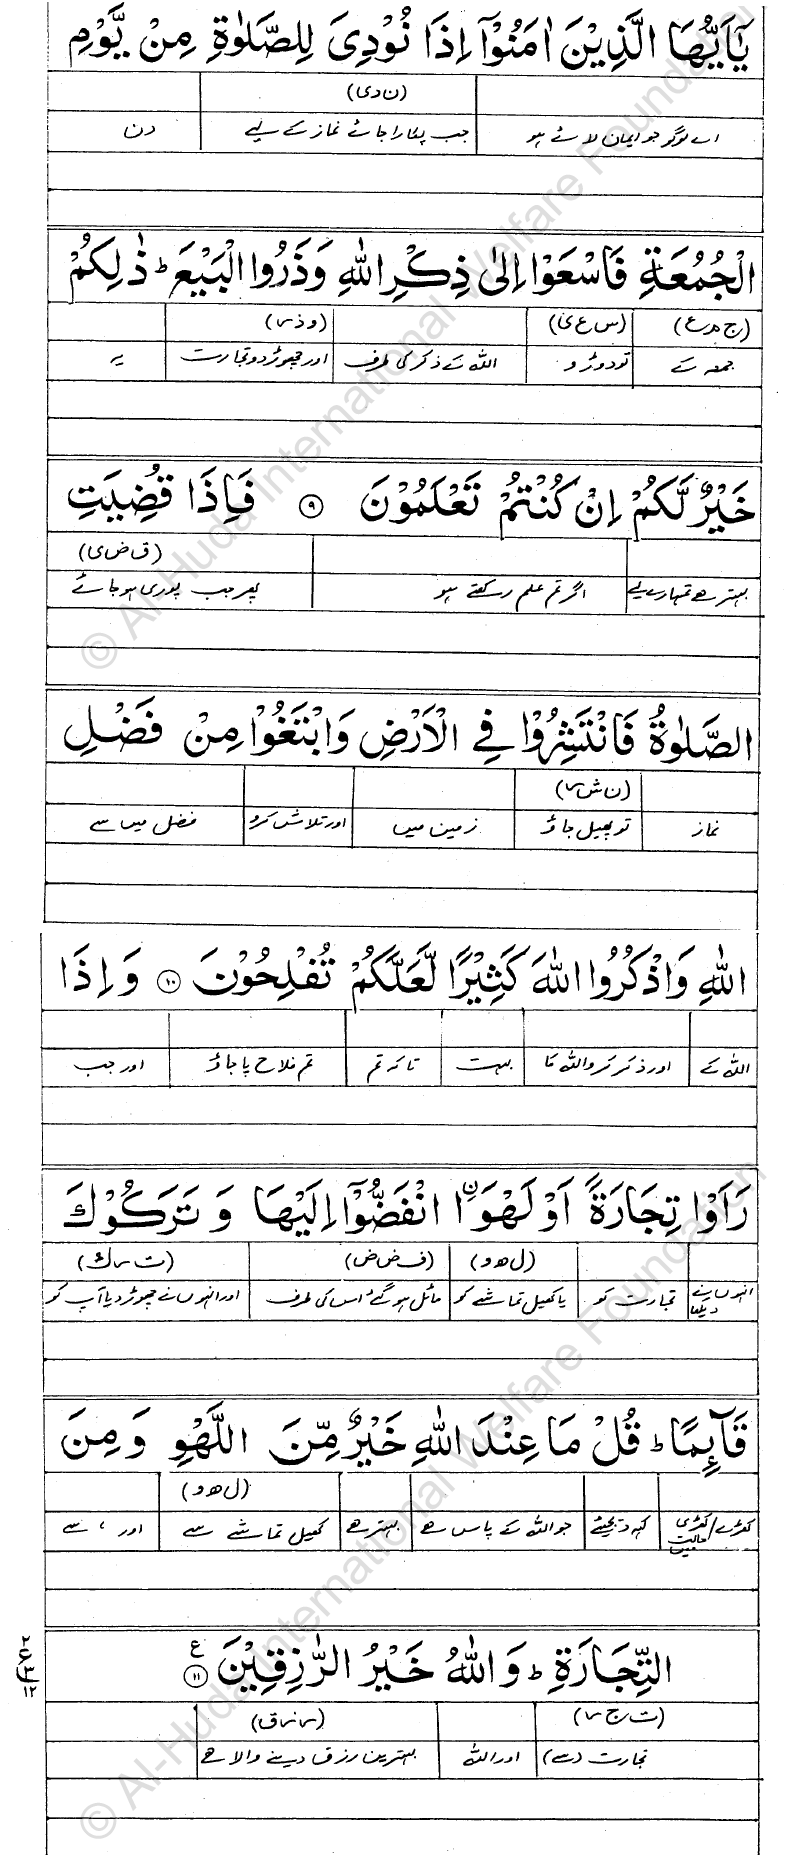 يٰٓاَيُّهَا الَّذِيْنَ اٰمَنُوْٓا اِذَا نُوْدِىَ لِلصَّلٰوةِ مِنْ يَّوْمِ
(ن د ی)
اے لوگو جو ایمان لائے ہو جب پکارا جائے نماز کے لیے دن
الْجُمُعَةِ فَاسْعَوْا اِلٰى ذِكْرِ اللّٰهِ وَذَرُوا الْبَيْعَ ؕ ذٰلِكُمْ
(ج م ع) (س ع ی) (و ذ ر)
جمعہ کے تو دوڑو اللہ کے ذکر کی طرف اور چھوڑ دو تجارت یہ
خَيْرٌ لَّكُمْ اِنْ كُنْتُمْ تَعْلَمُوْنَ ۹ فَاِذَا قُضِيَتِ
(ق ض ی)
بہتر ہے تمہارے لیے اگر تم علم رکھتے ہو پھر جب پوری ہو جائے
الصَّلٰوةُ فَانْتَشِرُوْا فِي الْاَرْضِ وَابْتَغُوْا مِنْ فَضْلِ
(ن ش ر)
نماز تو پھیل جاؤ زمین میں اور تلاش کرو فضل میں سے
اللّٰهِ وَاذْكُرُوا اللّٰهَ كَثِيْرًا لَّعَلَّكُمْ تُفْلِحُوْنَ ۱۰ وَاِذَا
اللہ کے اور ذکر کرو اللہ کا بہت تاکہ تم تم فلاح پا جاؤ اور جب
رَاَوْا تِجَارَةً اَوْ لَهْوَا۟ انْفَضُّوْٓا اِلَيْهَا وَتَرَكُوْكَ
(ل ه و) (ف ض ض) (ت ر ك)
انہوں نے دیکھا تجارت کو یا کھیل تماشے کو مائل ہو گئے اس کی طرف اور انہوں نے چھوڑ دیا آپ کو
قَآئِمًا ؕ قُلْ مَا عِنْدَ اللّٰهِ خَيْرٌ مِّنَ اللَّهْوِ وَمِنَ
(ل ه و)
کھڑے/کھڑی حالت میں کہہ دیجئے جو اللہ کے پاس ہے بہتر ہے کھیل تماشے سے اور ، سے
التِّجَارَةِ ؕ وَاللّٰهُ خَيْرُ الرّٰزِقِيْنَ ۱۱ ع
(ت ج ر) (ر ز ق)
تجارت (سے) اور اللہ بہترین رزق دینے والا ہے
© Al-Huda International Welfare Foundation
© Al-Huda International Welfare Foundation